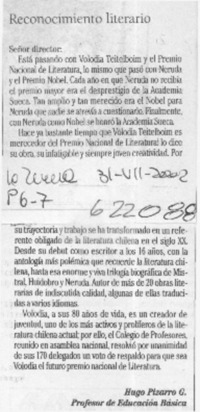 Reconocimiento literario
Señor director:
Está pasando con Volodia Teitelboim y el Premio
Nacional de Literatura, lo mismo que pasó con Neruda
y el Premio Nobel. Cada año en que Neruda no recibía
el premio mayor era el desprestigio de la Academia
Sueca. Tan amplio y tan merecido era el Nobel para
Neruda que nadie se atrevía a cuestionarlo. Finalmente,
con Neruda como Nobel se honró la Academia Sueca.
Hace ya bastante tiempo que Volodia Teitelboim es
merecedor del Premio Nacional de Literatura: lo dice
su obra, su infatigable y siempre joven creatividad. Por
La Tercera 31-VII-2002
P6-7
622088
su trayectoria y trabajo se ha transformado en un refe-
rente obligado de la literatura chilena en el siglo XX.
Desde su debut como escritor a los 16 años, con la
antología más polémica que recuerde la literatura chi-
lena, hasta esa enorme y viva trilogía biográfica de Mis-
tral, Huidobro y Neruda. Autor de más de 20 obras lite-
rarias de indiscutida calidad, algunas de ellas traduci-
das a varios idiomas.
Volodia, a sus 80 años de vida, es un creador de
juventud, uno de los más activos y prolíferos de la lite-
ratura chilena actual; por ello, el Colegio de Profesores,
reunido en asamblea nacional, resolvió por unanimidad
de sus 170 delegados un voto de respaldo para que sea
Volodia el futuro premio nacional de Literatura.
Hugo Pizarro G.
Profesor de Educación Básica